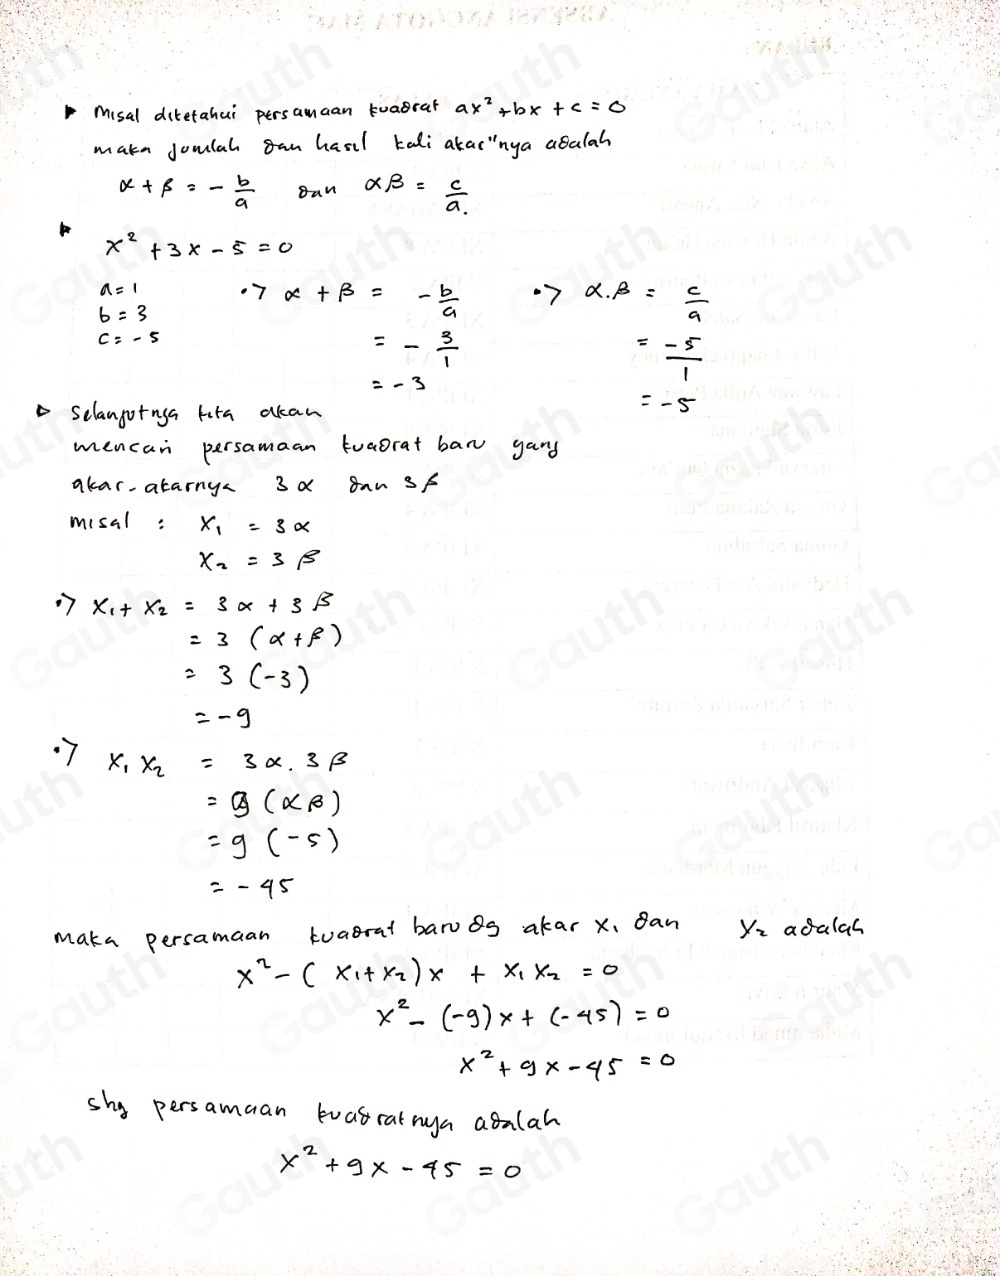 ▶ Misal diketahui persamaan kuadrat ax² + bx + c = 0
maka jumlah dan hasil kali akar"nya adalah
α + β = - b/a dan αβ = c/a.
x² + 3x - 5 = 0
a = 1
b = 3
c = -5
•> α + β = - b/a
= - 3/1
= -3
•> α.β = c/a
= -5/1
= -5
▷ Selanjutnya kita akan
mencari persamaan kuadrat baru yang
akar-akarnya 3α dan 3β
misal : x₁ = 3α
x₂ = 3β
•> x₁ + x₂ = 3α + 3β
= 3 (α+β)
= 3 (-3)
= -9
•> x₁ x₂ = 3α . 3β
= 9 (αβ)
= 9 (-5)
= -45
maka persamaan kuadrat baru dg akar x₁ dan x₂ adalah
x² - (x₁+x₂)x + x₁ x₂ = 0
x² - (-9)x + (-45) = 0
x² + 9x - 45 = 0
shg persamaan kuadratnya adalah
x² + 9x - 45 = 0